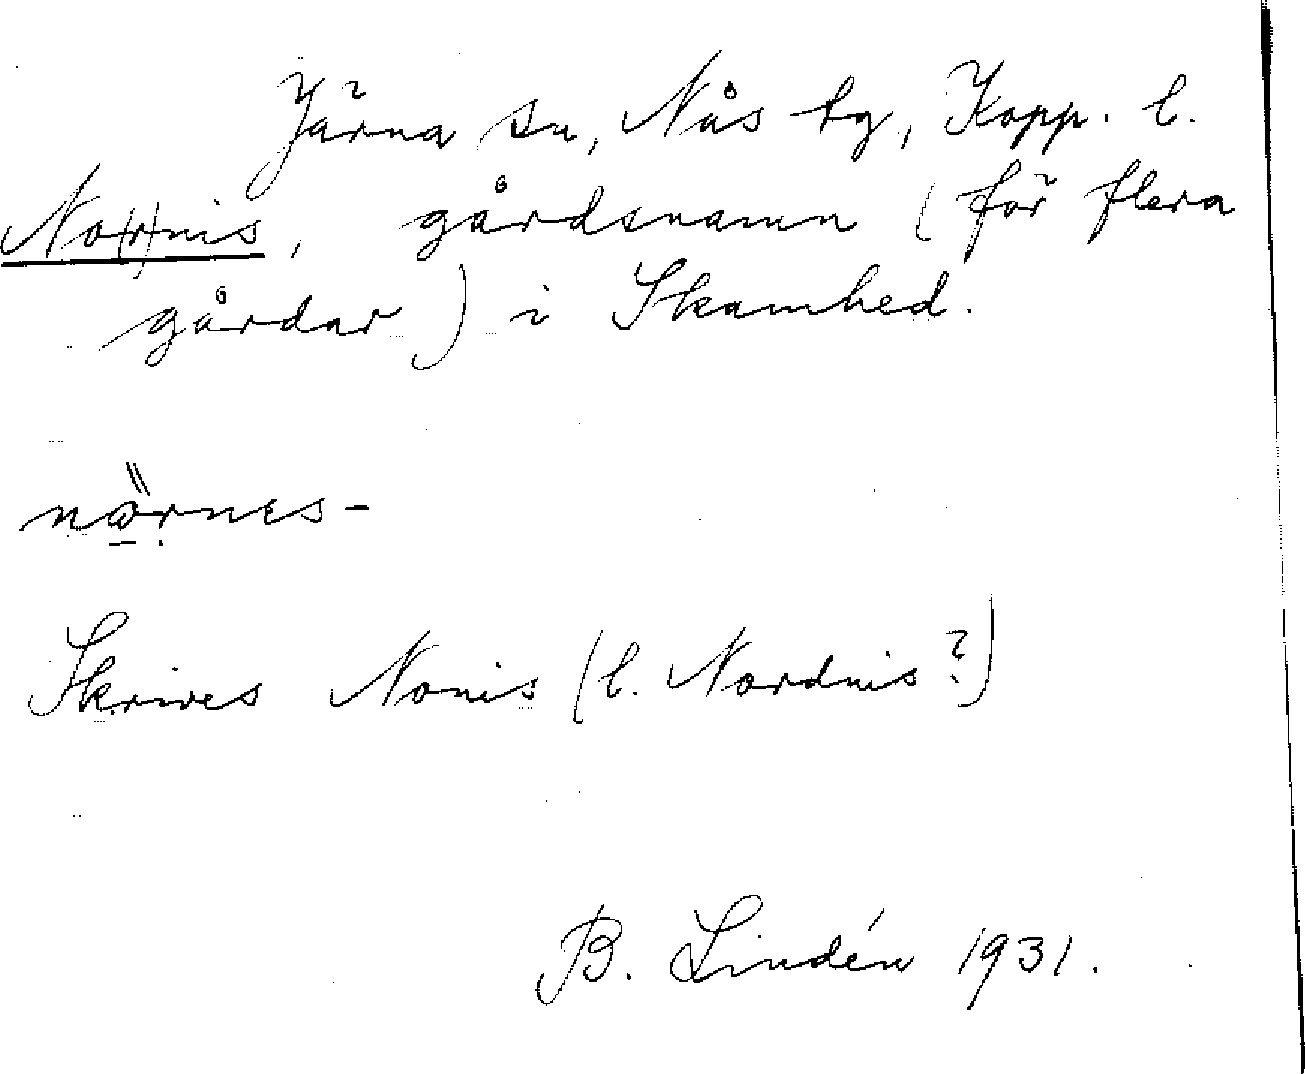 Järna sn, Nås tg, Kopp. l.
No(r)nis, gårdsnamn (för flera
gårdar) i Skamhed.
nörnes-
Skrives Nonis (l. Nordnis?)
B. Lindén 1931.